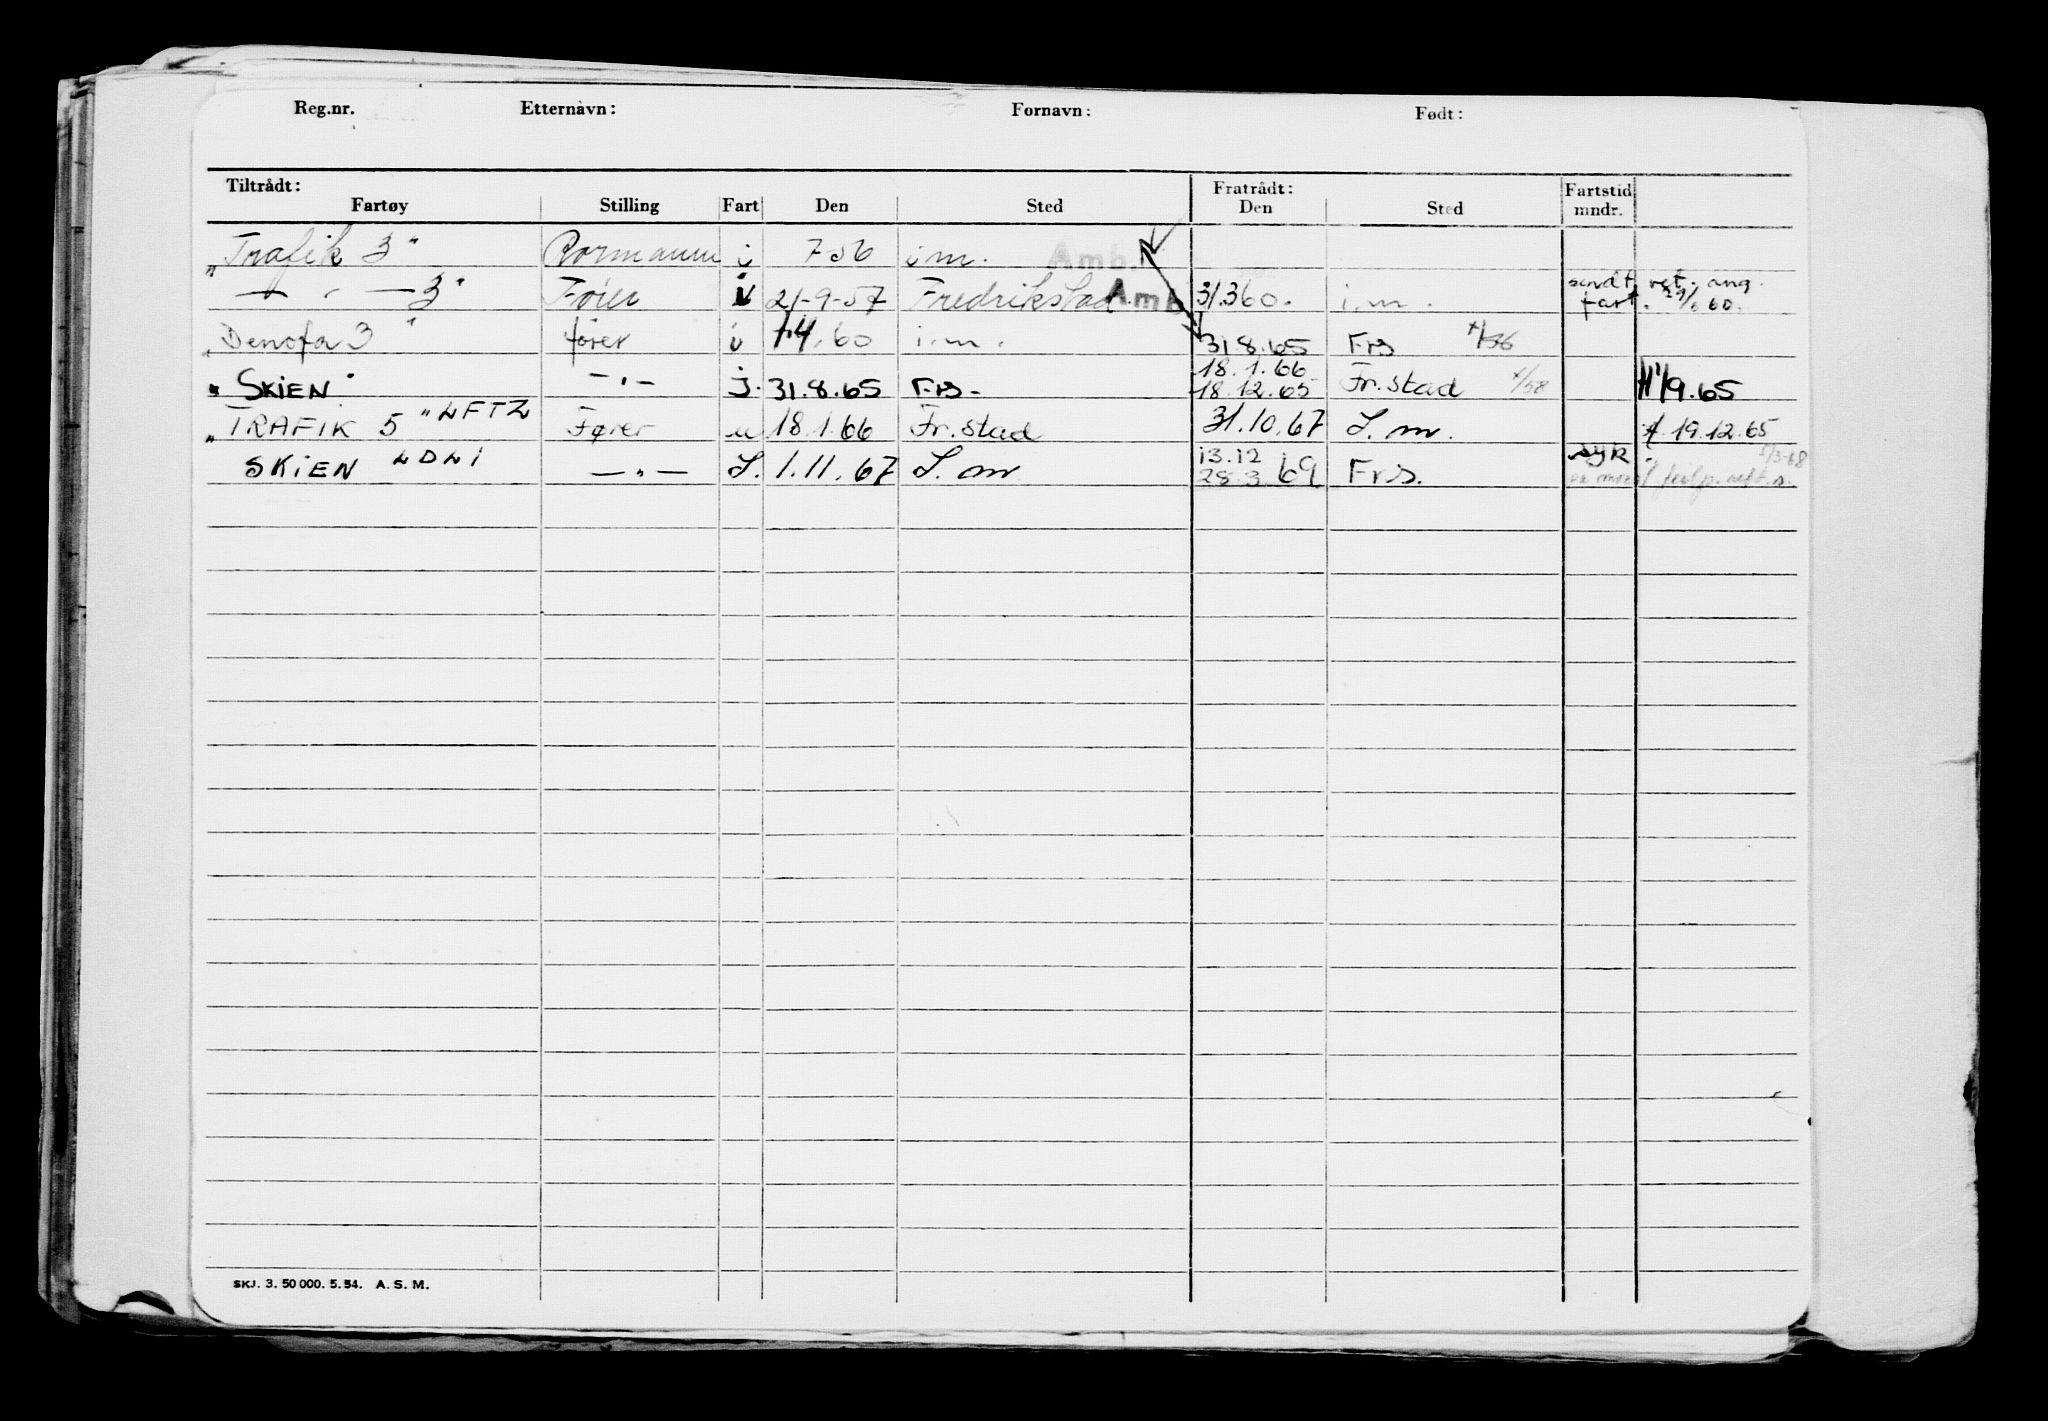 Reg.nr. Etternavn: Fornavn: Født:
Tiltrådt: Fratrådt: Fartstid
Fartøy Stilling Fart Den Sted Den Sted mndr.
"Trafik 3" i 7 56 i.m. Amb.
— " — 3" Fører i 21-9-57 Fredrikstad Amb 31.3.60. i.m. sendt ret. ang. fart. 29/6 60.
"Denofa 3" fører i 1.4.60 i.m. 31.8.65 Frs
"SKIEN" — " — J. 31.8.65 Frs - 18.1.66 18.12.65 Fr.stad 9.65
"TRAFIK 5" LFTZ Fører u 18.1.66 Fr.stad 31.10.67 S.m. 19.12.65
SKIEN LDLI — " — S. 1.11.67 S.m 13.12 28.3.69 Frs. syk
SKJ. 3. 50 000. 5. 54. A. S. M.